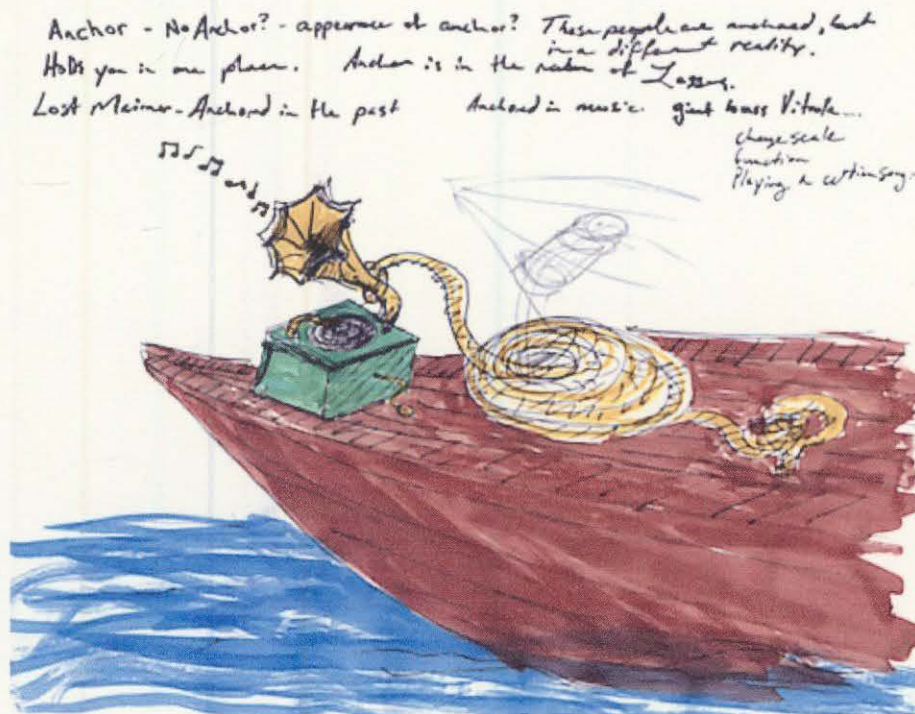 Anchor - No Anchor? - appearance of anchor? These people are anchored, but
in a different reality.
Holds you in one place. Anchor is in the realm of
Lost Mariner - Anchored in the past Anchored in music. giant brass Vitrola...
change scale
function
Playing a certain song.